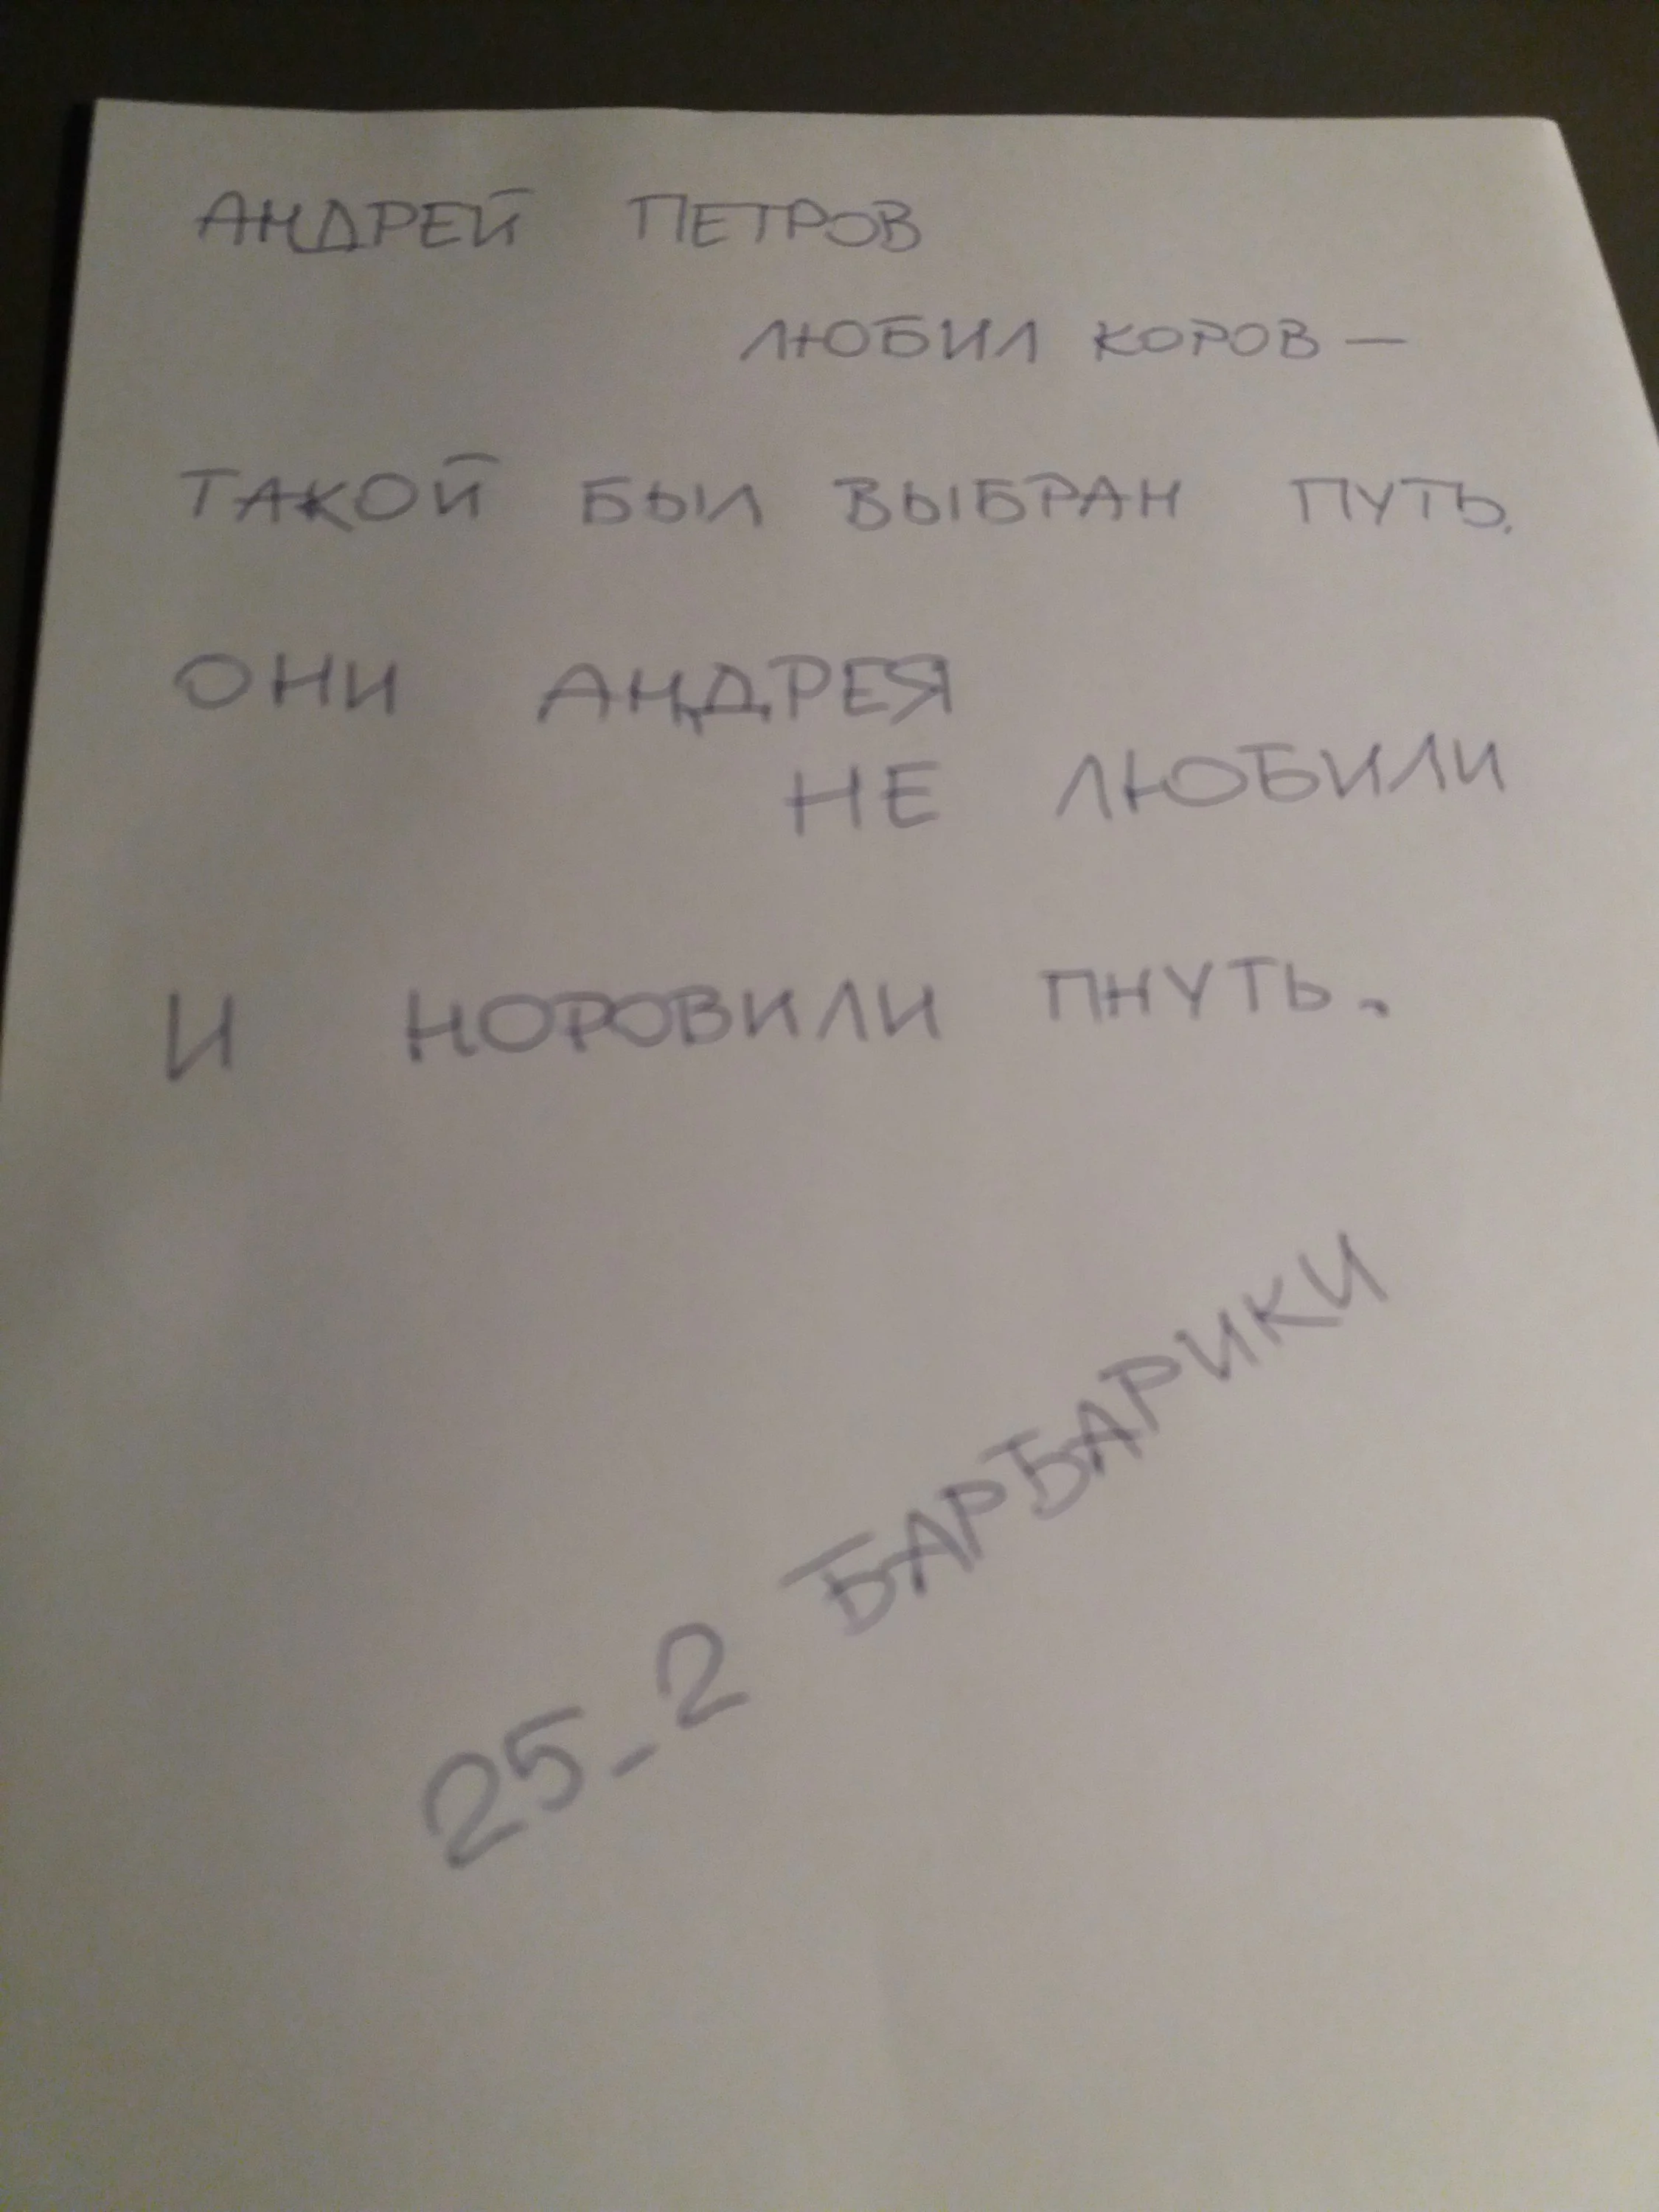 АНДРЕЙ ПЕТРОВ
ЛЮБИЛ КОРОВ —
ТАКОЙ БЫЛ ВЫБРАН ПУТЬ.
ОНИ АНДРЕЯ
НЕ ЛЮБИЛИ
И НОРОВИЛИ ПНУТЬ.
25_2 БАРБАРИКИ